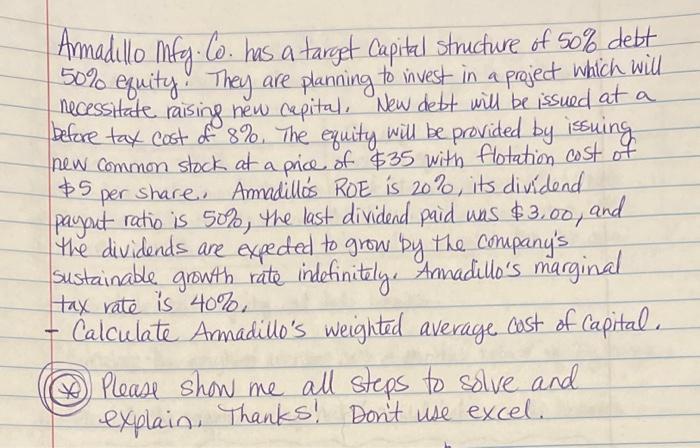 Armadillo Mfg. Co. has a target Capital structure of 50% debt
50% equity. They are planning to invest in a project which will
necessitate raising new capital. New debt will be issued at a
before tax cost of 8%. The equity will be provided by issuing
new common stock at a price of $35 with flotation cost of
$5 per share. Armadillo's ROE is 20%, its dividend
payout ratio is 50%, the last dividend paid was $3.00, and
the dividends are expected to grow by the company's
sustainable growth rate indefinitely. Armadillo's marginal
tax rate is 40%.
- Calculate Armadillo's weighted average cost of Capital.
* Please show me all steps to solve and
explain. Thanks! Don't use excel.